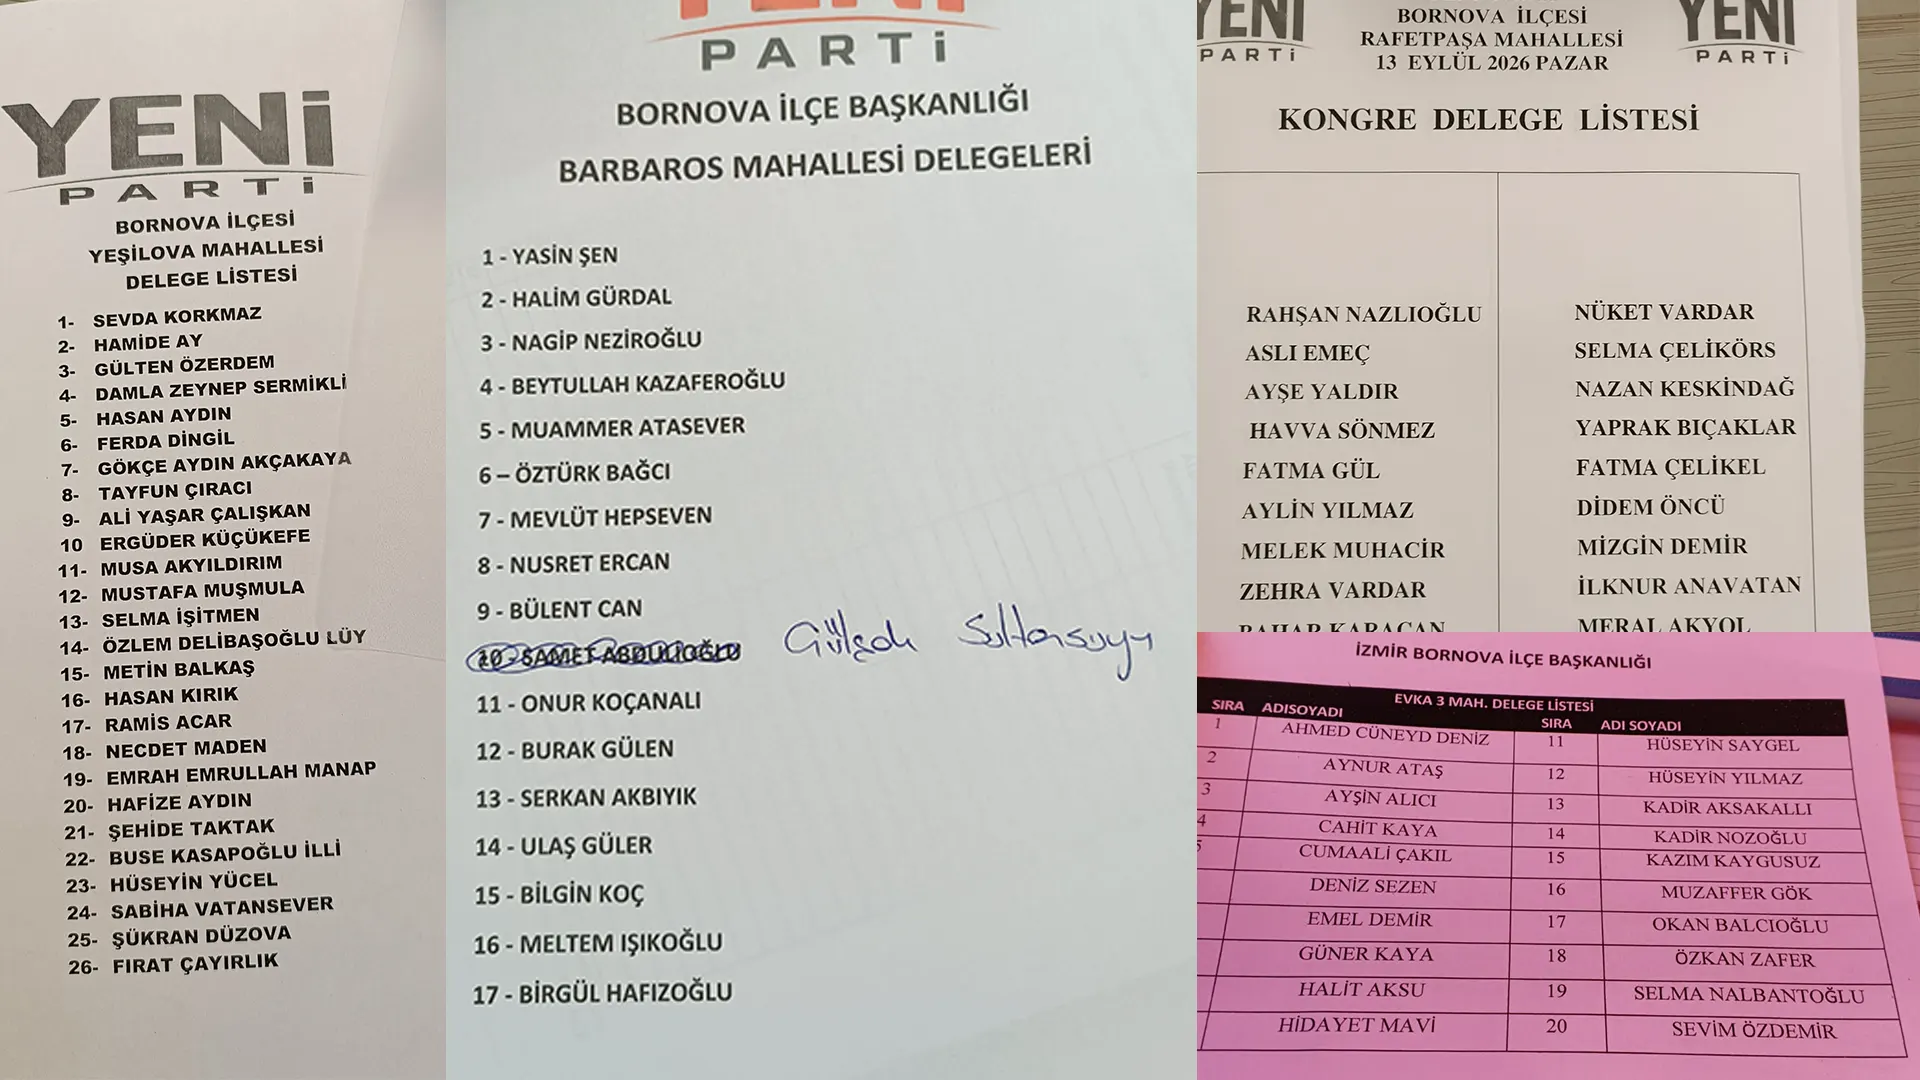 YENİ
PARTİ
BORNOVA İLÇESİ
YEŞİLOVA MAHALLESİ
DELEGE LİSTESİ
1- SEVDA KORKMAZ
2- HAMİDE AY
3- GÜLTEN ÖZERDEM
4- DAMLA ZEYNEP SERMİKLİ
5- HASAN AYDIN
6- FERDA DİNGİL
7- GÖKÇE AYDIN AKÇAKAYA
8- TAYFUN ÇIRACI
9- ALİ YAŞAR ÇALIŞKAN
10 ERGÜDER KÜÇÜKEFE
11- MUSA AKYILDIRIM
12- MUSTAFA MUŞMULA
13- SELMA İŞİTMEN
14- ÖZLEM DELİBAŞOĞLU LÜY
15- METİN BALKAŞ
16- HASAN KIRIK
17- RAMİS ACAR
18- NECDET MADEN
19- EMRAH EMRULLAH MANAP
20- HAFİZE AYDIN
21- ŞEHİDE TAKTAK
22- BUSE KASAPOĞLU İLLİ
23- HÜSEYİN YÜCEL
24- SABİHA VATANSEVER
25- ŞÜKRAN DÜZOVA
26- FIRAT ÇAYIRLIK
YENİ
PARTİ
BORNOVA İLÇE BAŞKANLIĞI
BARBAROS MAHALLESİ DELEGELERİ
1 - YASİN ŞEN
2 - HALİM GÜRDAL
3 - NAGİP NEZİROĞLU
4 - BEYTULLAH KAZAFEROĞLU
5 - MUAMMER ATASEVER
6 – ÖZTÜRK BAĞCI
7 - MEVLÜT HEPSEVEN
8 - NUSRET ERCAN
9 - BÜLENT CAN
10 - SAMET ABDULİOĞLU
11 - ONUR KOÇANALI
12 - BURAK GÜLEN
13 - SERKAN AKBIYIK
14 - ULAŞ GÜLER
15 - BİLGİN KOÇ
16 - MELTEM IŞIKOĞLU
17 - BİRGÜL HAFIZOĞLU
YENİ
PARTİ
BORNOVA İLÇESİ
RAFETPAŞA MAHALLESİ
13 EYLÜL 2026 PAZAR
YENİ
PARTİ
KONGRE DELEGE LİSTESİ
RAHŞAN NAZLIOĞLU NÜKET VARDAR
ASLI EMEÇ SELMA ÇELİKÖRS
AYŞE YALDIR NAZAN KESKİNDAĞ
HAVVA SÖNMEZ YAPRAK BIÇAKLAR
FATMA GÜL FATMA ÇELİKEL
AYLİN YILMAZ DİDEM ÖNCÜ
MELEK MUHACİR MİZGİN DEMİR
ZEHRA VARDAR İLKNUR ANAVATAN
BAHAR KARACAN MERAL AKYOL
İZMİR BORNOVA İLÇE BAŞKANLIĞI
EVKA 3 MAH. DELEGE LİSTESİ
SIRA ADISOYADI SIRA ADI SOYADI
1 AHMED CÜNEYD DENİZ 11 HÜSEYİN SAYGEL
2 AYNUR ATAŞ 12 HÜSEYİN YILMAZ
3 AYŞİN ALICI 13 KADİR AKSAKALLI
4 CAHİT KAYA 14 KADİR NOZOĞLU
5 CUMAALİ ÇAKIL 15 KAZIM KAYGUSUZ
DENİZ SEZEN 16 MUZAFFER GÖK
EMEL DEMİR 17 OKAN BALCIOĞLU
GÜNER KAYA 18 ÖZKAN ZAFER
HALİT AKSU 19 SELMA NALBANTOĞLU
HİDAYET MAVİ 20 SEVİM ÖZDEMİR